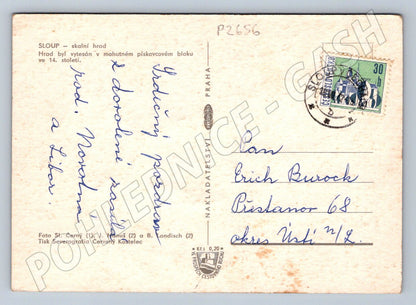 P2656
SLOUP – skalní hrad
Hrad byl vytesán v mohutném pískovcovém bloku
ve 14. století.
Srdečný pozdrav
z dovolené zasílá
rod. Novotna
a Libor.
PRAHA
NAKLADATELSTVÍ
ČESKOSLOVENSKO
30
h
SLOUP V ČECH.
b
Pan
Erich Burock
Přestanov 68
okres Ústí n/L.
Foto St. Černý (1), J.
(2) a B. Landisch (2)
Tisk Severografia Červený Kostelec
Kčs 0,20
POHLEDNICE - GASH